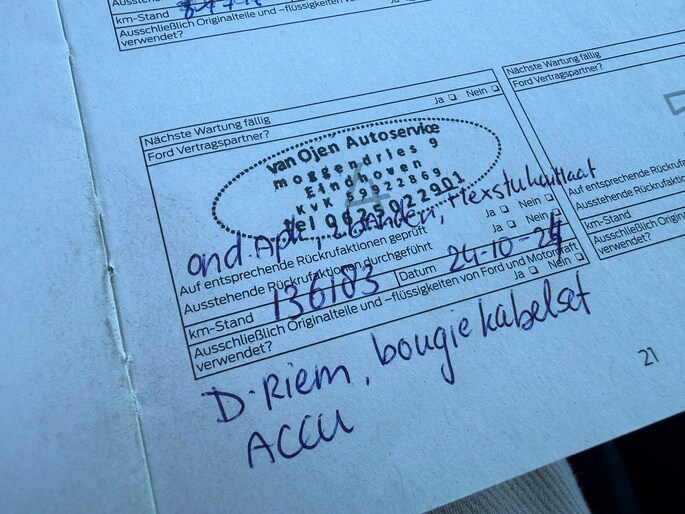 km-Stand
Ausschließlich Originalteile und –flüssigkeiten von
verwendet?
Nächste Wartung fällig
Ford Vertragspartner? Ja Nein
van Ojen Autoservice
moggendries 9
Eindhoven
KvK
tel 0625022901
ond. APK, 2 banden,
Auf entsprechende Rückrufaktionen geprüft Ja Nein
Ausstehende Rückrufaktionen durchgeführt Ja Nein
km-Stand 136183 Datum 24-10-24
Ausschließlich Originalteile und –flüssigkeiten von Ford und Motorcraft
verwendet? Ja Nein
D-Riem, bougiekabelset
ACCU
Nächste Wartung fällig
Ford Vertragspartner?
Auf entsprechende Rückrufa
Ausstehende Rückrufaktion
km-Stand
Ausschließlich Originalte
verwendet?
21